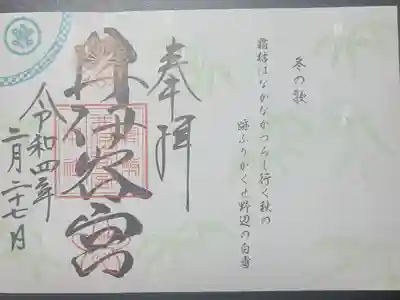 冬の歌
霜枯はなかなかつらし行く秋の
跡ふりかくせ野辺の白雪
奉拝
井伊谷宮
令和四年
二月二十七日